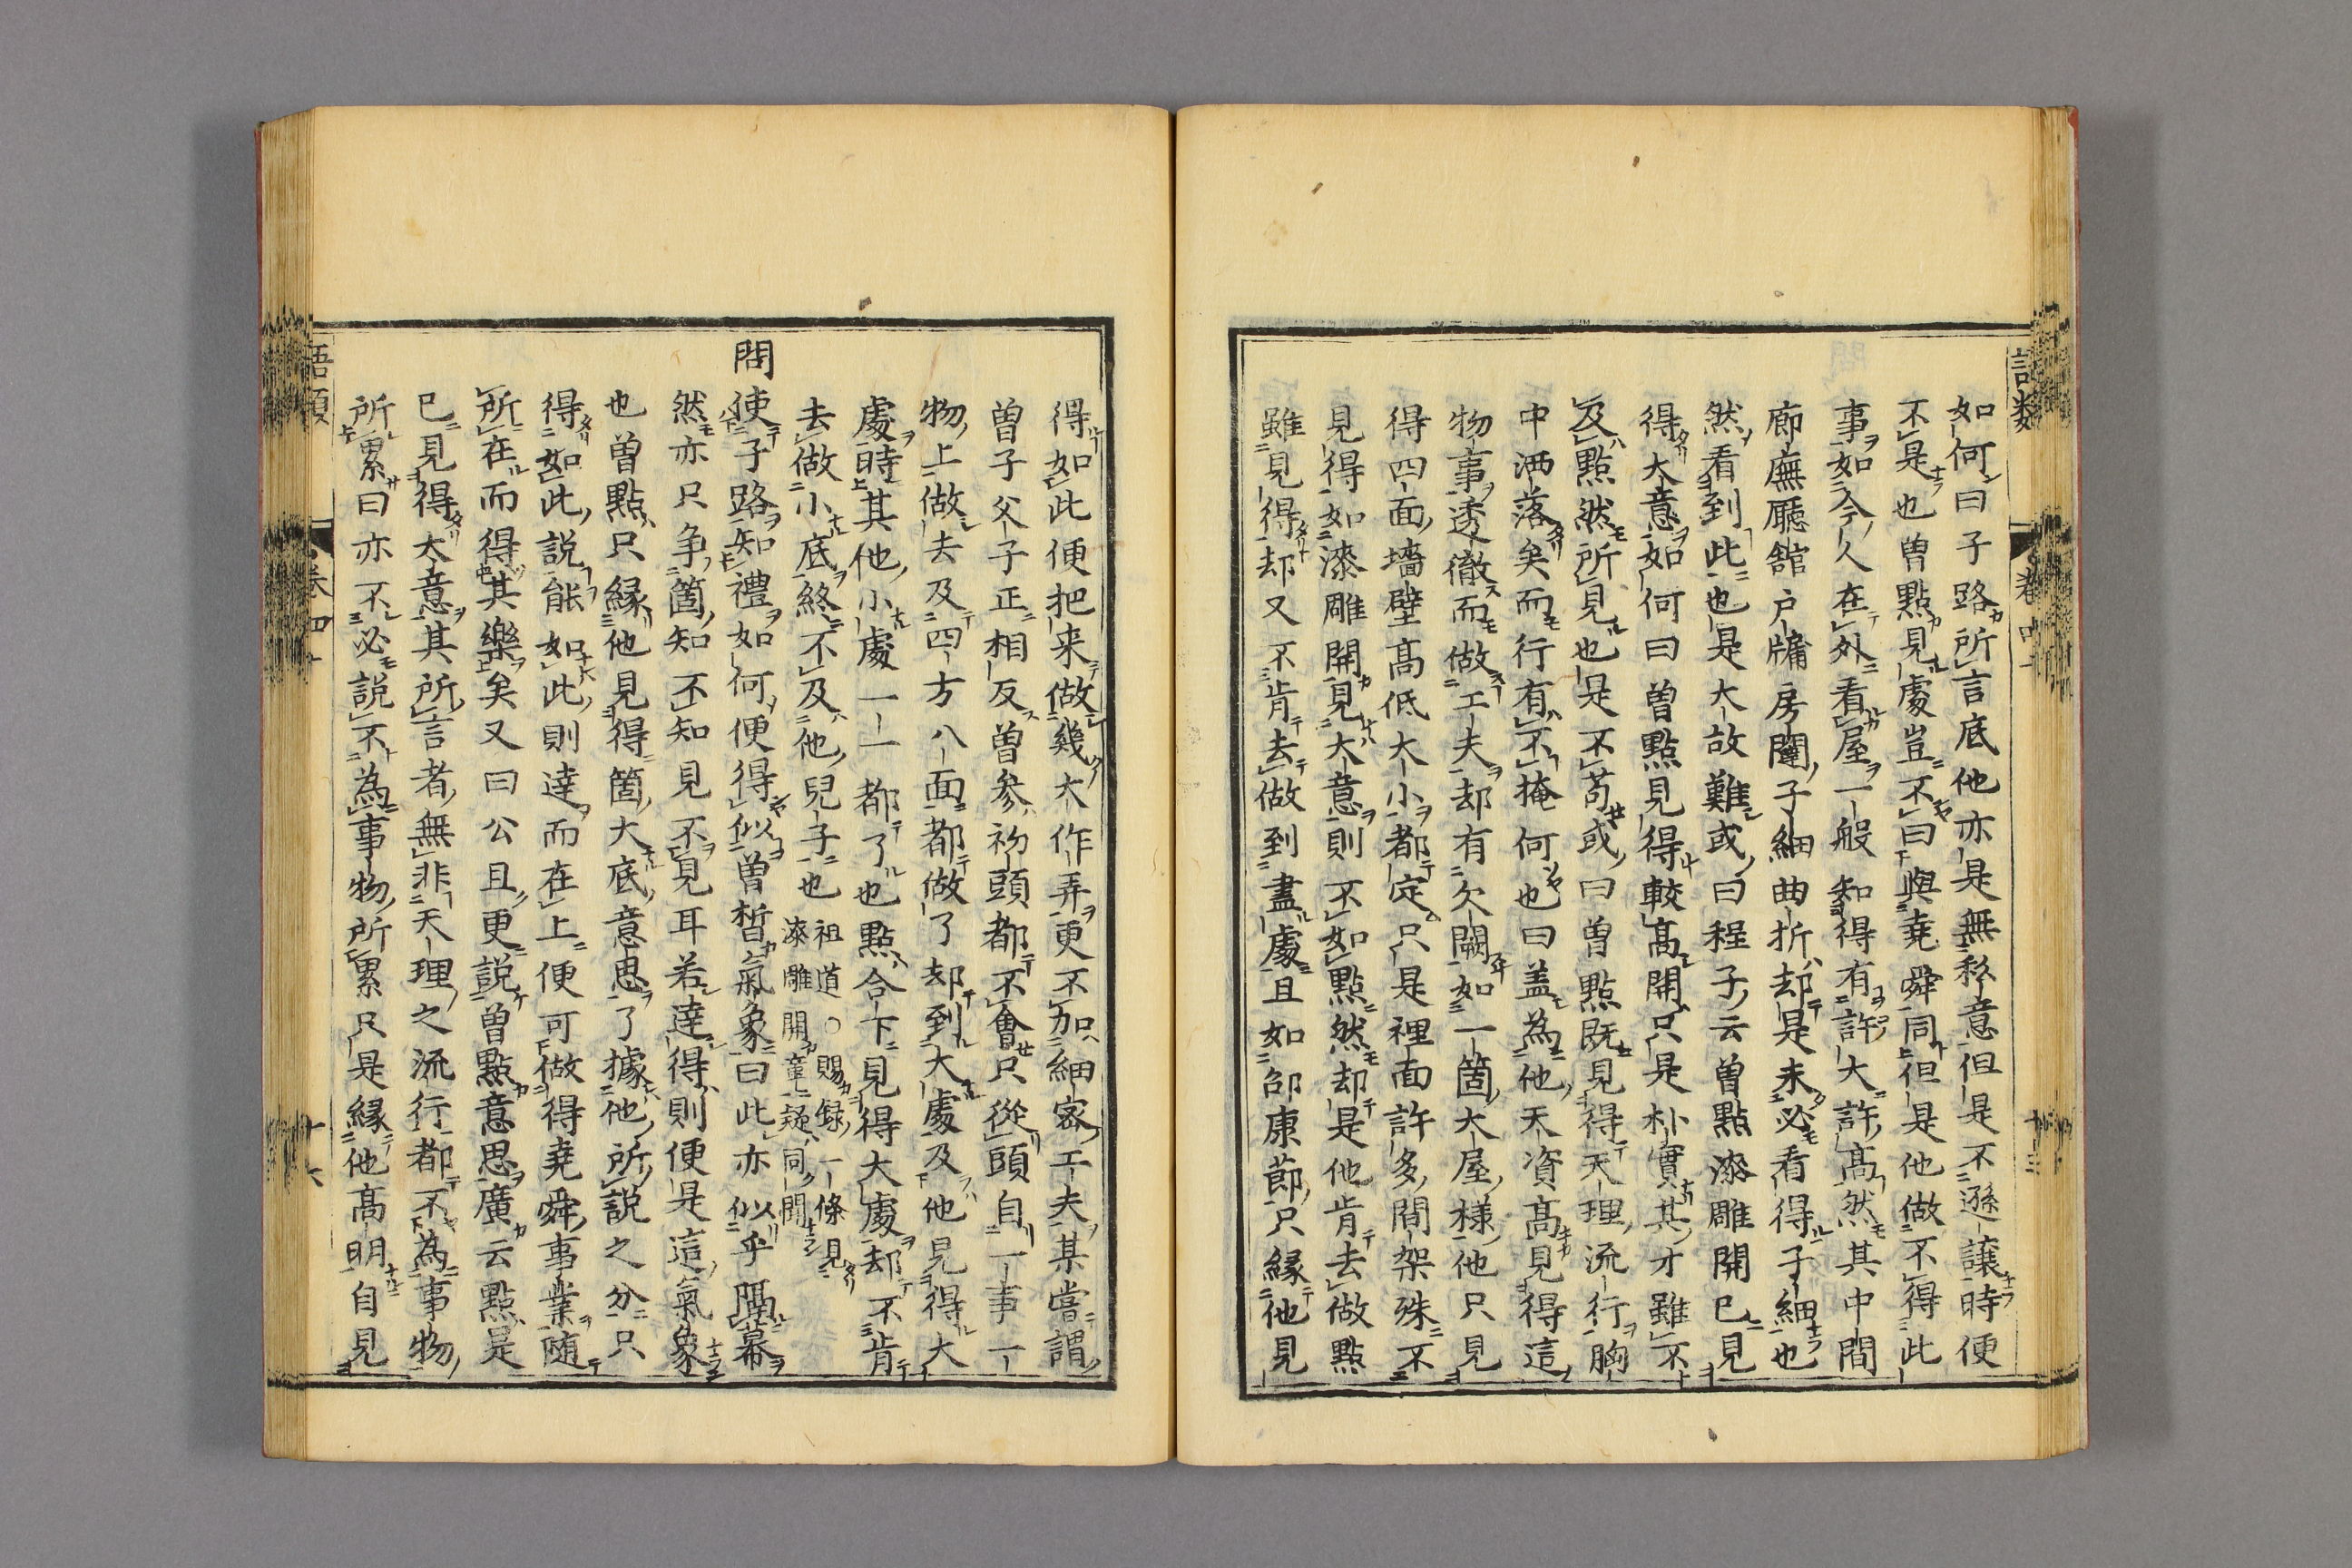 如何曰子路所言底他亦是無私意但是不遜讓時便
不是也曽點見處豈不曰與堯舜同但是他做不得此
事如今人在外看屋一般知得有許大許髙然其中間
廊廡廳舘戸牖房闥子細曲折却是未必看得子細也
然看到此也是大故難或曰程子云曽點漆雕開已見
得大意如何曰曽點見得較髙開只是朴實其才雖不
及點然所見也是不苟或曰曽點既見得天理流行胸
中洒落矣而行有不掩何也曰盖為他天資髙見得這
物事透徹而做工夫却有欠闕如一箇大屋樣他只見
得四面墻壁髙低大小都定只是裡面許多間架殊不
見得如漆雕開見大意則不如點然却是他肯去做點
雖見得却又不肯去做到盡處且如邵康莭只縁他見
得如此便把来做幾大作弄更不加細宻工夫某嘗謂
曽子父子正相反曽參初頭都不會只從頭自一事一
物上做去及四方八面都做了却到大處及他見得大
處時其他小處一一都了也點合下見得大處却不肯
去做小底終不及他兒子也 祖道○賜録一條見
漆雕開章疑同聞
問使子路知禮如何便得似曽皙氣象曰此亦似乎隔幕
然亦只争箇知不知見不見耳若達得則便是這氣象
也曽點只縁他見得箇大底意思了據他所說之分只
得如此說能如此則達而在上便可做得堯舜事業随
所在而得其樂矣又曰公且更說曽點意思廣云點是
已見得大意其所言者無非天理之流行都不為事物
所累曰亦不必說不為事物所累只是縁他髙明自見
語類
卷四十
十六